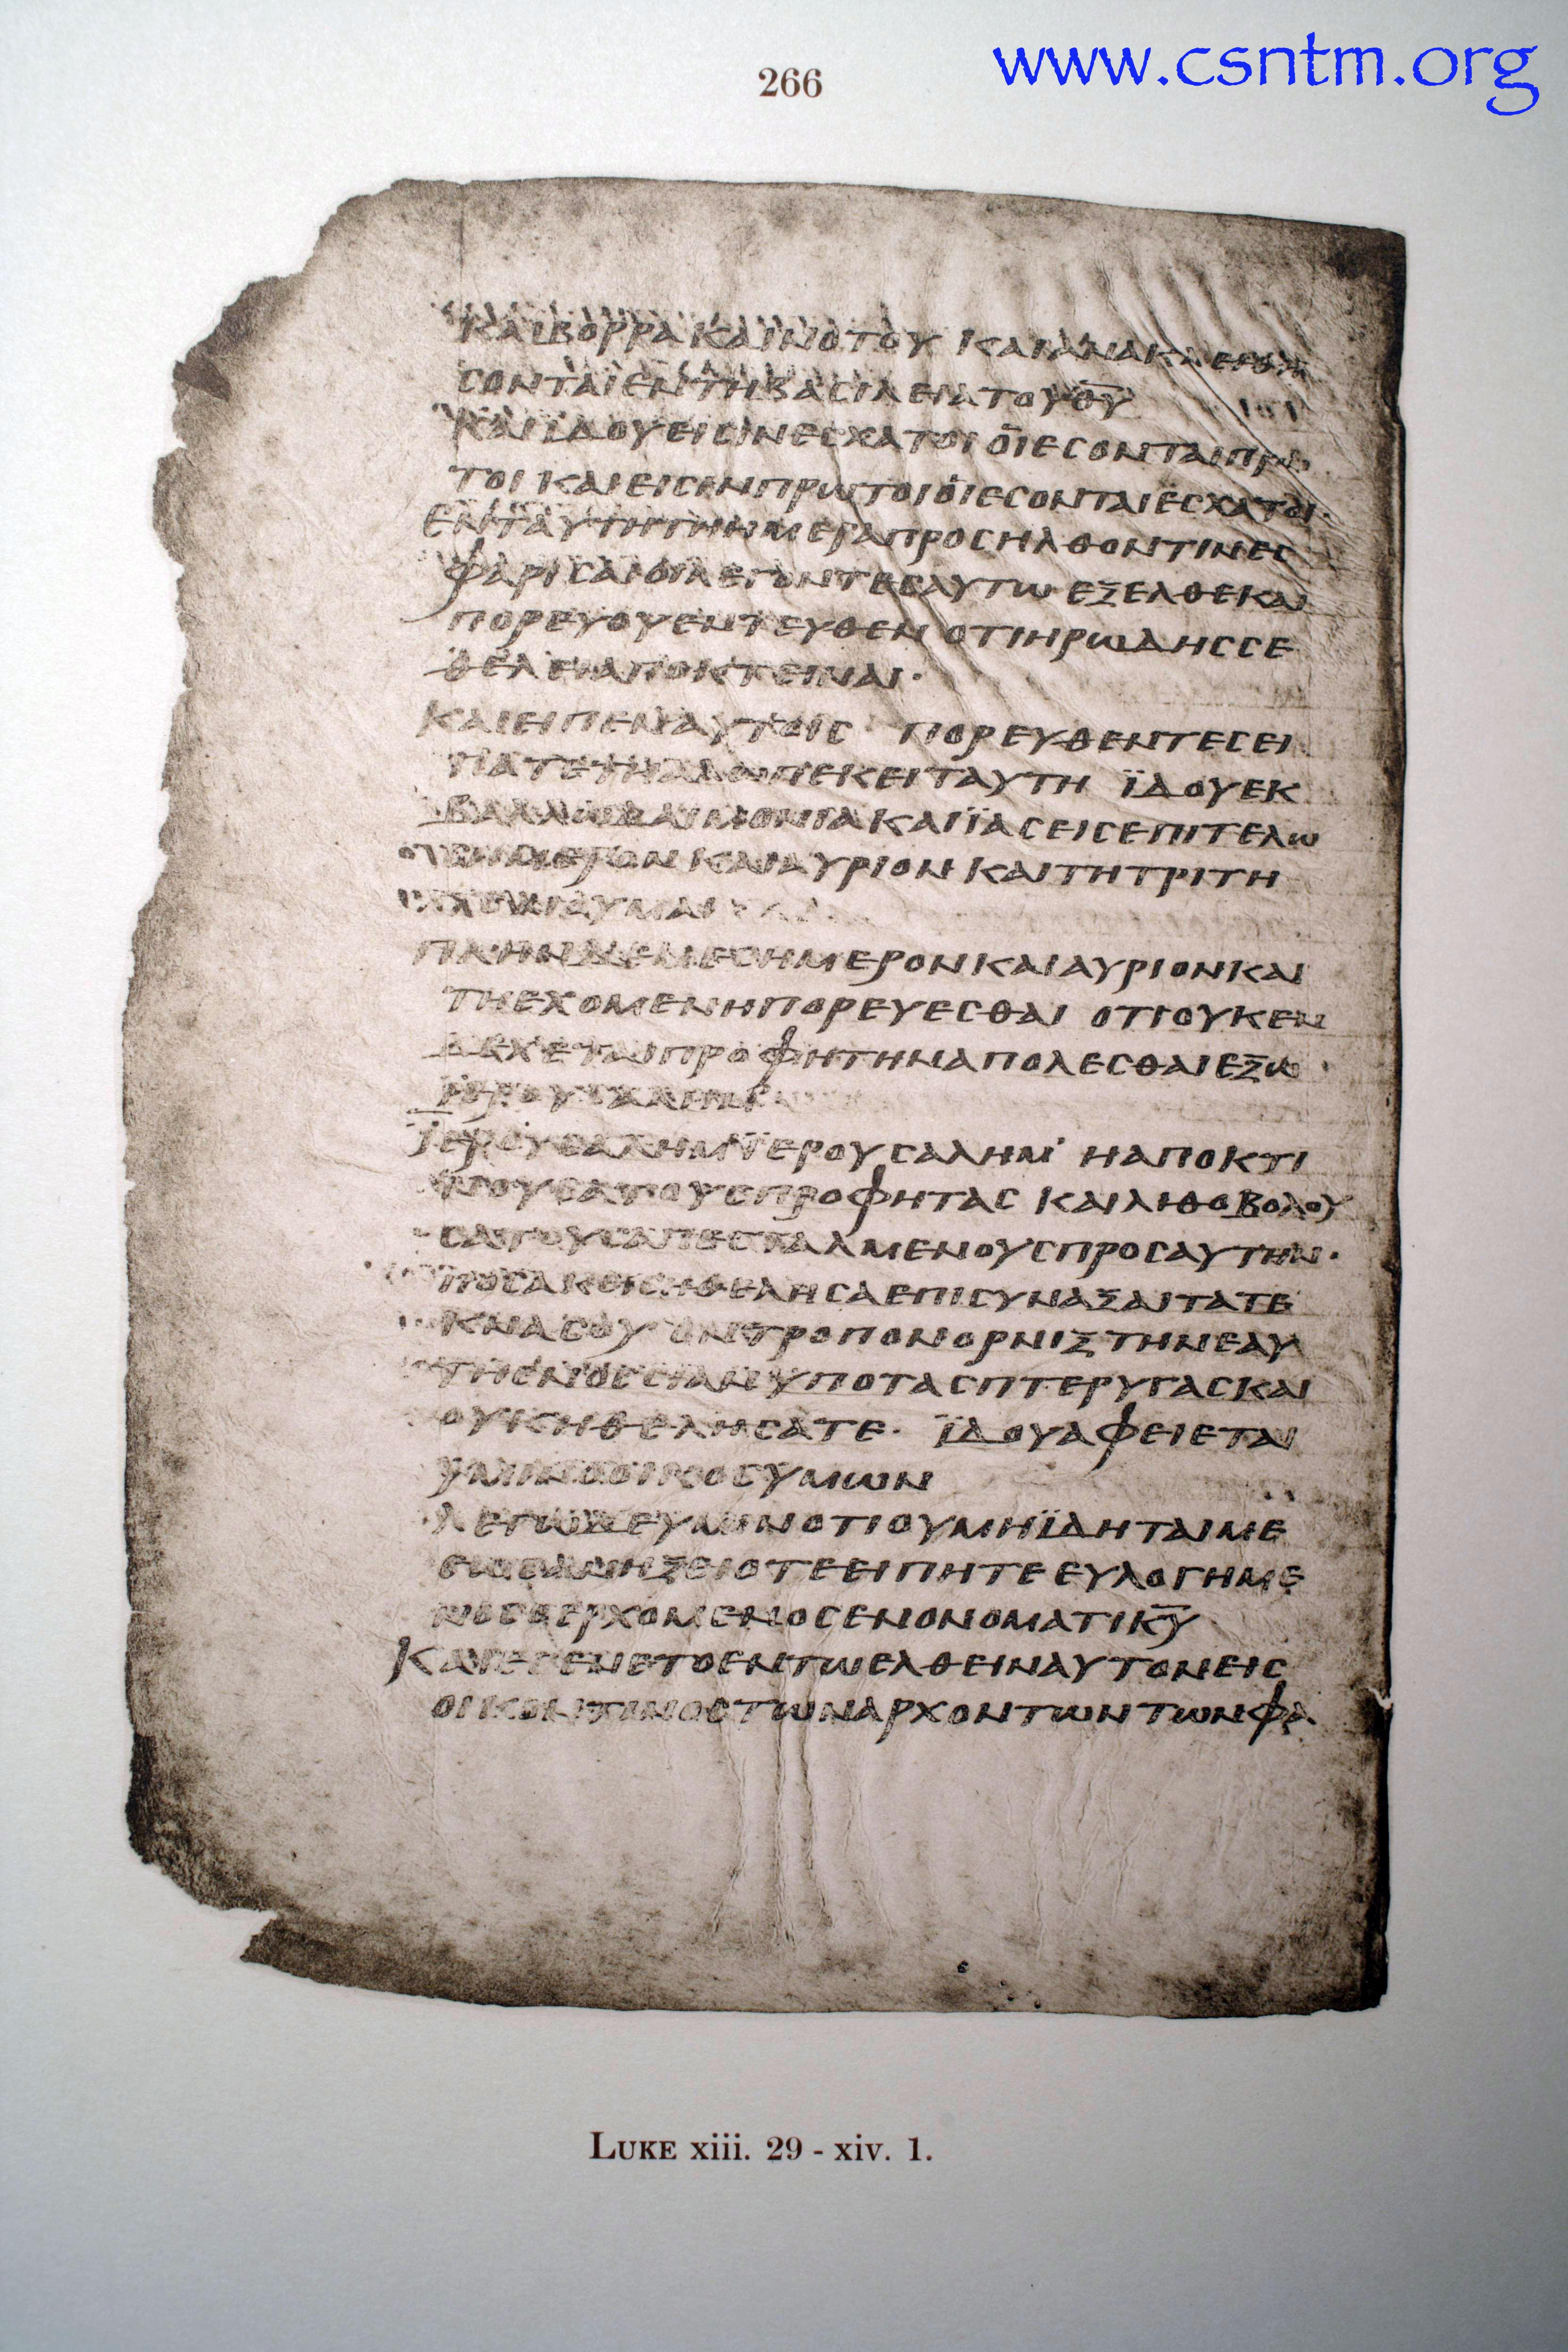 266
www.csntm.org
ΚΑΙΒΟΡΡΑΚΑΙΝΟΤΟΥ ΚΑΙΑΝΑΚΛΕΙΘΗ
ϹΟΝΤΑΙΕΝΤΗΒΑϹΙΛΕΙΑΤΟΥΘ̅Υ̅
ΚΑΙΪΔΟΥΕΙϹΙΝΕϹΧΑΤΟΙΟΙΕϹΟΝΤΑΙΠΡΩ
ΤΟΙ ΚΑΙΕΙϹΙΝΠΡΩΤΟΙΟΙΕϹΟΝΤΑΙΕϹΧΑΤΟΙ·
ΕΝΤΑΥΤΗΤΗΗΜΕΡΑΠΡΟϹΗΛΘΟΝΤΙΝΕϹ
ΦΑΡΙϹΑΙΟΙΛΕΓΟΝΤΕϹΑΥΤΩ ΕΞΕΛΘΕΚΑΙ
ΠΟΡΕΥΟΥΕΝΤΕΥΘΕΝ ΟΤΙΗΡΩΔΗϹϹΕ
ΘΕΛΕΙΑΠΟΚΤΕΙΝΑΙ·
ΚΑΙΕΙΠΕΝΑΥΤΟΙϹ ΠΟΡΕΥΘΕΝΤΕϹΕΙ
ΠΑΤΕΤΗΑΛΩΠΕΚΕΙΤΑΥΤΗ ΪΔΟΥΕΚ
ΒΑΛΛΩΔΑΙΜΟΝΙΑΚΑΙΪΑϹΕΙϹΕΠΙΤΕΛΩ
ΚΑΙΑΥΡΙΟΝΚΑΙΤΗΤΡΙΤΗ
ΠΛΗΝΔΕΜΕϹΗΜΕΡΟΝΚΑΙΑΥΡΙΟΝΚΑΙ
ΤΗΕΧΟΜΕΝΗΠΟΡΕΥΕϹΘΑΙ ΟΤΙΟΥΚΕΝ
ΔΕΧΕΤΑΙΠΡΟΦΗΤΗΝΑΠΟΛΕϹΘΑΙΕΞΩ
ΪΕΡΟΥϹΑΛΗΜ
ΪΕΡΟΥϹΑΛΗΜΪΕΡΟΥϹΑΛΗΜ ΗΑΠΟΚΤΙ
ΝΟΥϹΑΤΟΥϹΠΡΟΦΗΤΑϹ ΚΑΙΛΙΘΟΒΟΛΟΥ
ϹΑΤΟΥϹΑΠΕϹΤΑΛΜΕΝΟΥϹΠΡΟϹΑΥΤΗΝ·
ΠΟϹΑΚΕΙϹΗΘΕΛΗϹΑΕΠΙϹΥΝΑΞΑΙΤΑΤΕ
ΚΝΑϹΟΥ ΟΝΤΡΟΠΟΝΟΡΝΙΞΤΗΝΕΑΥ
ΤΗϹΝΟϹϹΙΑΝΥΠΟΤΑϹΠΤΕΡΥΓΑϹΚΑΙ
ΟΥΚΗΘΕΛΗϹΑΤΕ· ΪΔΟΥΑΦΕΙΕΤΑΙ
ΥΜΙΝΟΟΙΚΟϹΥΜΩΝ
ΛΕΓΩΔΕΥΜΙΝΟΤΙΟΥΜΗΪΔΗΤΑΙΜΕ
ΕΩϹΑΝΗΞΕΙΟΤΕΕΙΠΗΤΕΕΥΛΟΓΗΜΕ
ΝΟϹΟΕΡΧΟΜΕΝΟϹΕΝΟΝΟΜΑΤΙΚ̅Υ̅
ΚΑΙΕΓΕΝΕΤΟΕΝΤΩΕΛΘΕΙΝΑΥΤΟΝΕΙϹ
ΟΙΚΟΝΤΙΝΟϹΤΩΝΑΡΧΟΝΤΩΝΤΩΝΦΑ
LUKE xiii. 29 - xiv. 1.